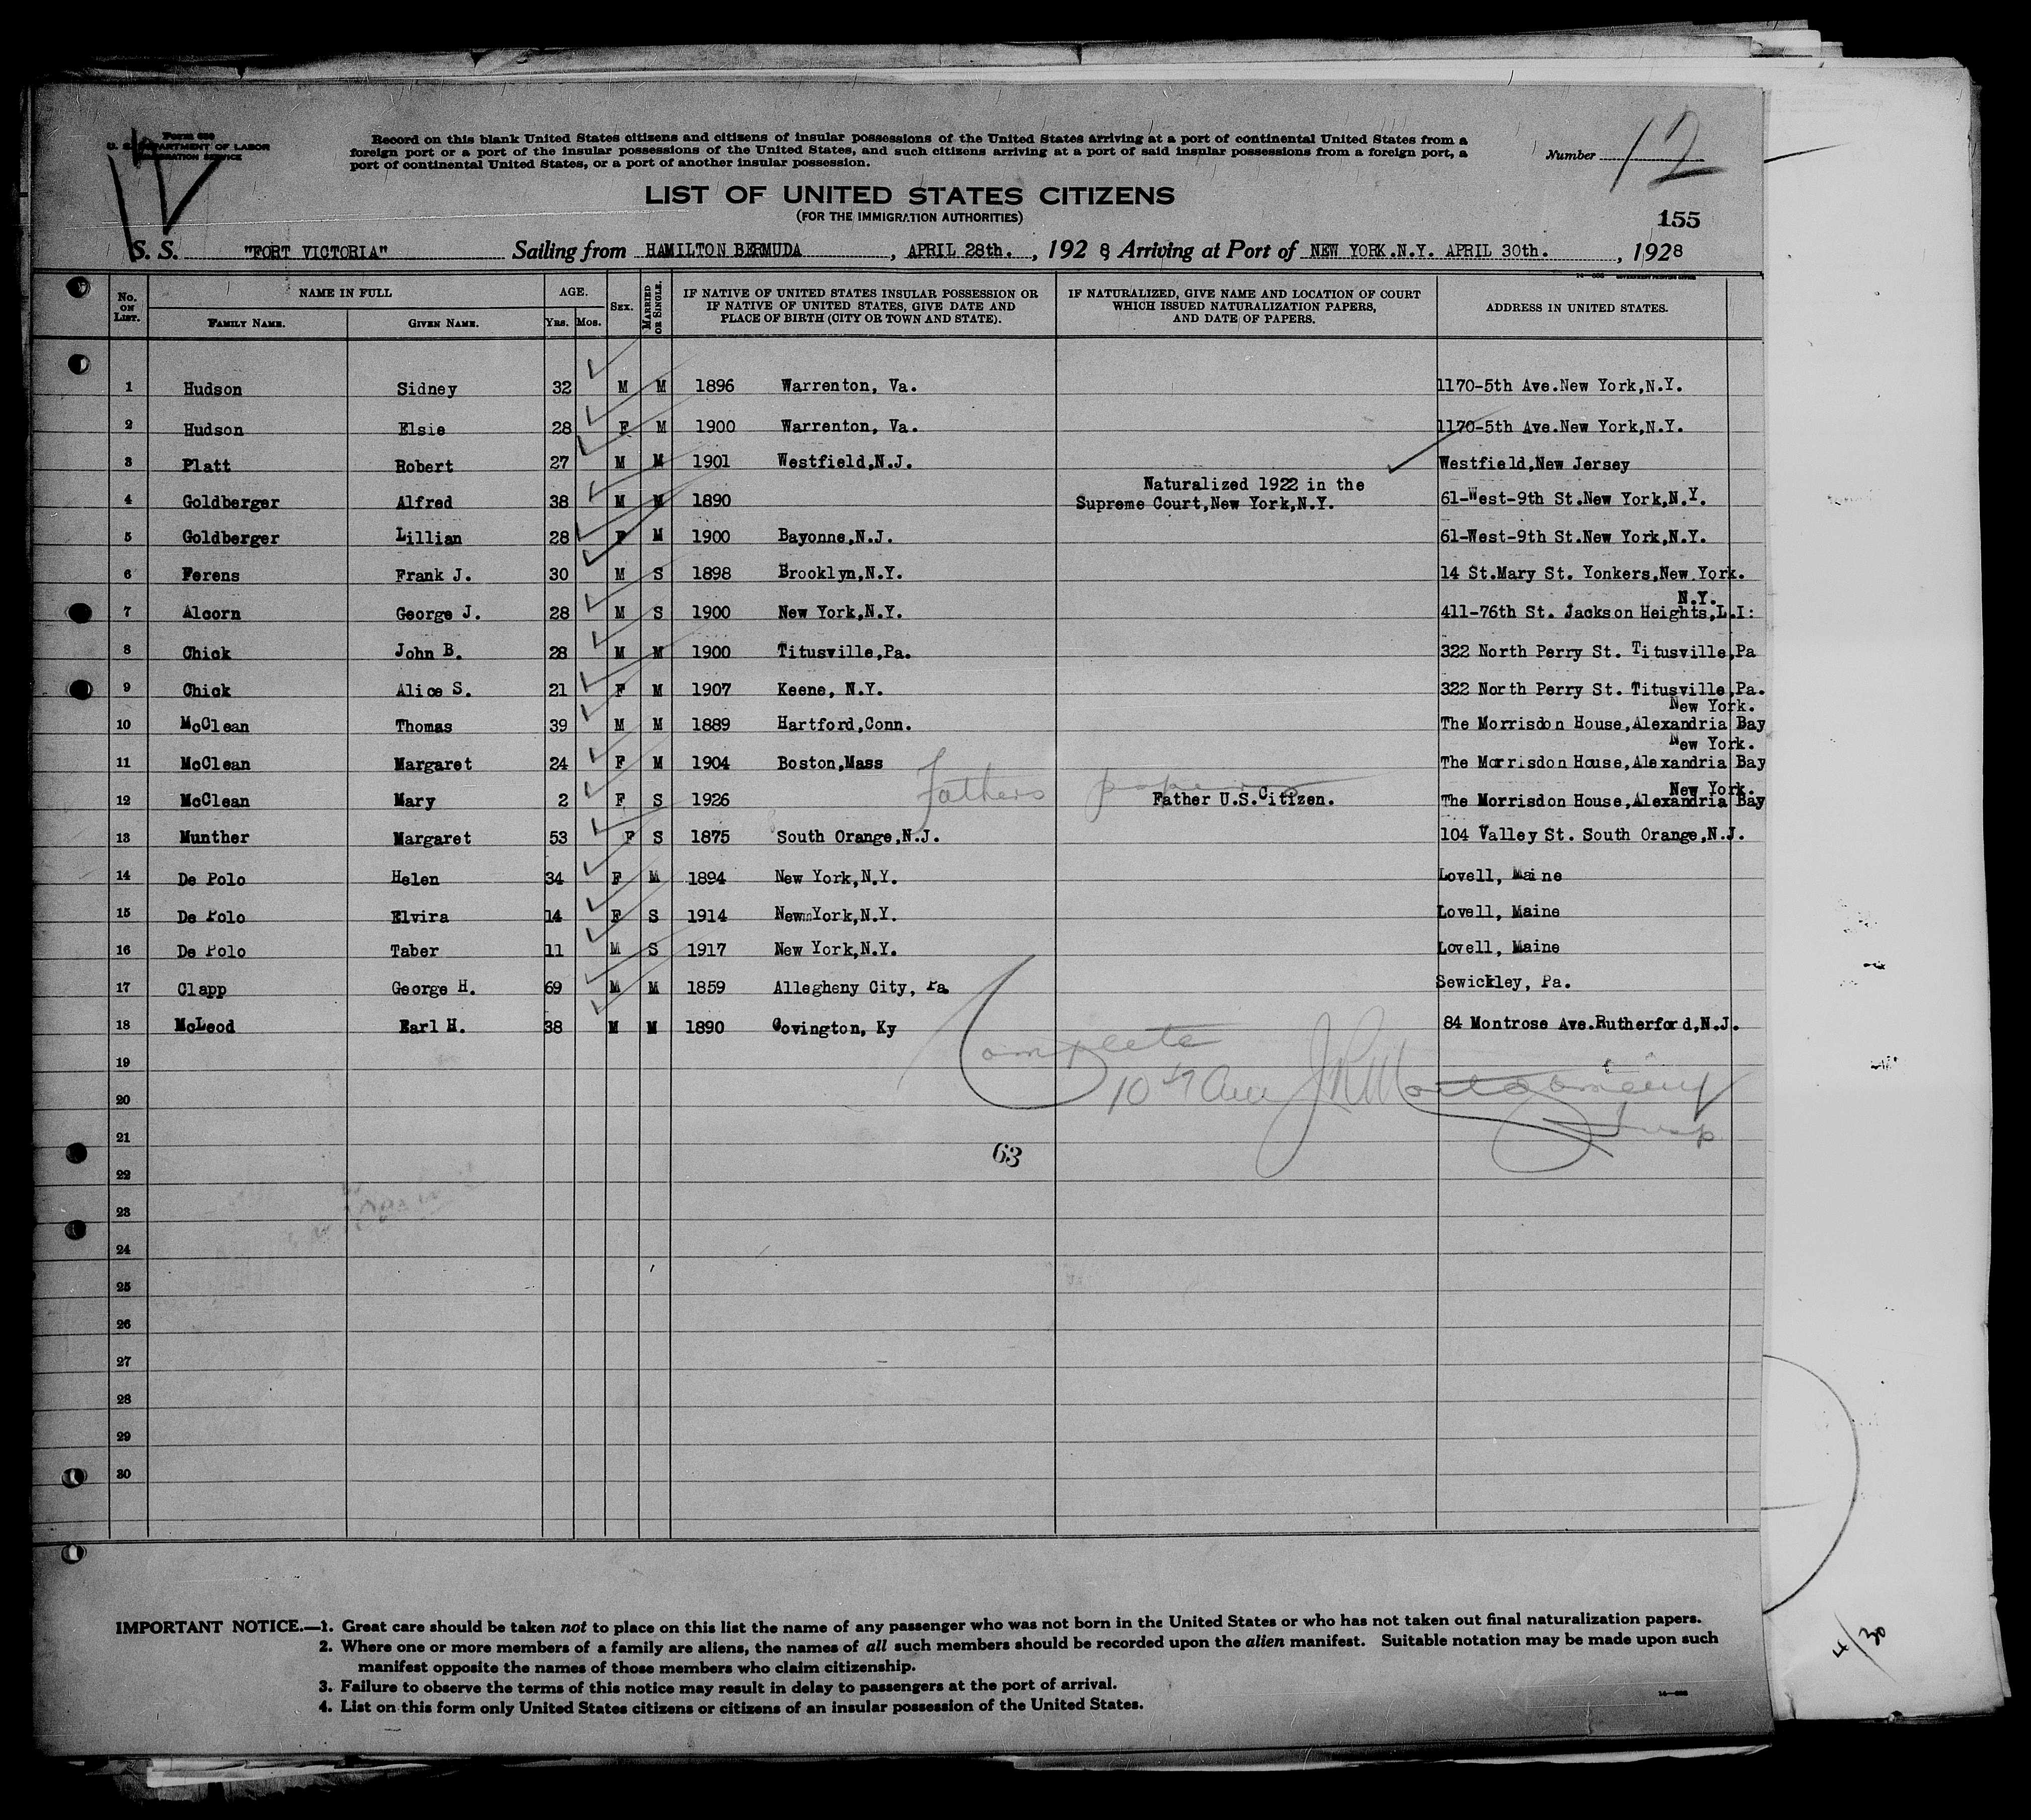 Form 630
U. S. DEPARTMENT OF LABOR
IMMIGRATION SERVICE
Record on this blank United States citizens and citizens of insular possessions of the United States arriving at a port of continental United States from a
foreign port or a port of the insular possessions of the United States, and such citizens arriving at a port of said insular possessions from a foreign port, a
port of continental United States, or a port of another insular possession.
Number 12
LIST OF UNITED STATES CITIZENS
(FOR THE IMMIGRATION AUTHORITIES)
155
S. S. "FORT VICTORIA" Sailing from HAMILTON BERMUDA, APRIL 28th., 1928 Arriving at Port of NEW YORK.N.Y. APRIL 30th., 1928
No. ON LIST. NAME IN FULL FAMILY NAME. GIVEN NAME. AGE. Yrs. Mos. SEX. MARRIED OR SINGLE. IF NATIVE OF UNITED STATES INSULAR POSSESSION OR IF NATIVE OF UNITED STATES, GIVE DATE AND PLACE OF BIRTH (CITY OR TOWN AND STATE). IF NATURALIZED, GIVE NAME AND LOCATION OF COURT WHICH ISSUED NATURALIZATION PAPERS, AND DATE OF PAPERS. ADDRESS IN UNITED STATES.
1 Hudson Sidney 32 M M 1896 Warrenton, Va. 1170-5th Ave.New York,N.Y.
2 Hudson Elsie 28 F M 1900 Warrenton, Va. 1170-5th Ave.New York,N.Y.
3 Platt Robert 27 M M 1901 Westfield,N.J. Westfield,New Jersey
Naturalized 1922 in the
4 Goldberger Alfred 38 M M 1890 Supreme Court,New York,N.Y. 61-West-9th St.New York,N.Y.
5 Goldberger Lillian 28 F M 1900 Bayonne,N.J. 61-West-9th St.New York,N.Y.
6 Ferens Frank J. 30 M S 1898 Brooklyn,N.Y. 14 St.Mary St. Yonkers,New York.
N.Y.
7 Alcorn George J. 28 M S 1900 New York,N.Y. 411-76th St. Jackson Heights,L.I:
8 Chick John B. 28 M M 1900 Titusville,Pa. 322 North Perry St. Titusville,Pa
9 Chick Alice S. 21 F M 1907 Keene, N.Y. 322 North Perry St. Titusville,Pa.
New York.
10 McClean Thomas 39 M M 1889 Hartford,Conn. The Morrisdon House,Alexandria Bay
New York.
11 McClean Margaret 24 F M 1904 Boston,Mass The Morrisdon House,Alexandria Bay
Fathers papers
New York.
12 McClean Mary 2 F S 1926 Father U.S.Citizen. The Morrisdon House,Alexandria Bay
13 Munther Margaret 53 F S 1875 South Orange,N.J. 104 Valley St. South Orange,N.J.
14 De Polo Helen 34 F M 1894 New York,N.Y. Lovell, Maine
15 De Polo Elvira 14 F S 1914 New York,N.Y. Lovell, Maine
16 De Polo Taber 11 M S 1917 New York,N.Y. Lovell, Maine
17 Clapp George H. 69 M M 1859 Allegheny City, Pa Sewickley, Pa.
18 McLeod Earl H. 38 M M 1890 Covington, Ky 84 Montrose Ave.Rutherford,N.J.
19
Complete
20
J R Montgomery
21
Insp
63
22
23
24
25
26
27
28
29
30
IMPORTANT NOTICE.—1. Great care should be taken not to place on this list the name of any passenger who was not born in the United States or who has not taken out final naturalization papers.
2. Where one or more members of a family are aliens, the names of all such members should be recorded upon the alien manifest. Suitable notation may be made upon such
manifest opposite the names of those members who claim citizenship.
3. Failure to observe the terms of this notice may result in delay to passengers at the port of arrival.
4. List on this form only United States citizens or citizens of an insular possession of the United States.
4/30